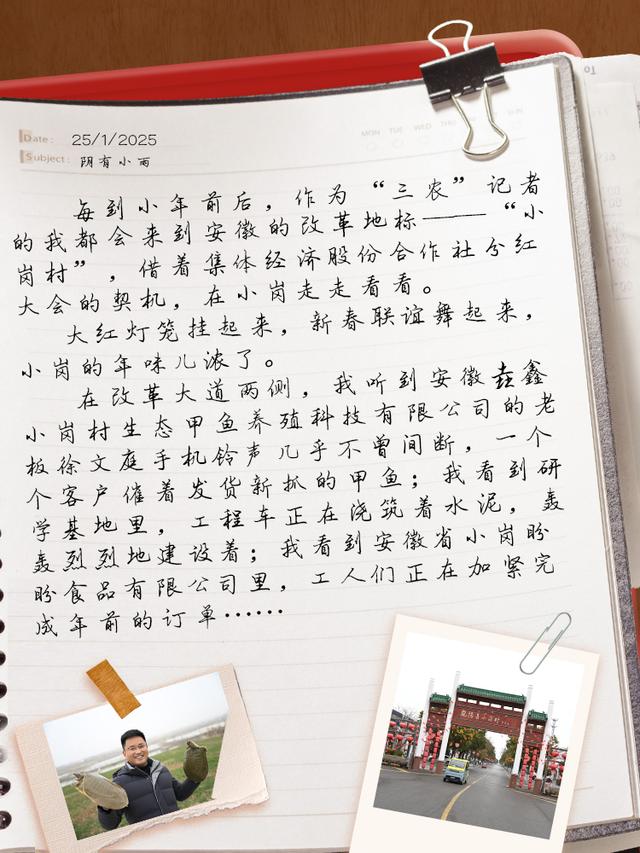 Date: 25/1/2025
MON TUE WED THU SUN
Subject: 阴有小雨
To
每到小年前后，作为“三农”记者
的我都会来到安徽的改革地标——“小
岗村”，借着集体经济股份合作社分红
大会的契机，在小岗走走看看。
大红灯笼挂起来，新春联谊舞起来，
小岗的年味儿浓了。
在改革大道两侧，我听到安徽垚鑫
小岗村生态甲鱼养殖科技有限公司的老
板徐文庭手机铃声几乎不曾间断，一个
个客户催着发货新抓的甲鱼；我看到研
学基地里，工程车正在浇筑着水泥，轰
轰烈烈地建设着；我看到安徽省小岗盼
盼食品有限公司里，工人们正在加紧完
成年前的订单……
凤阳县小岗村